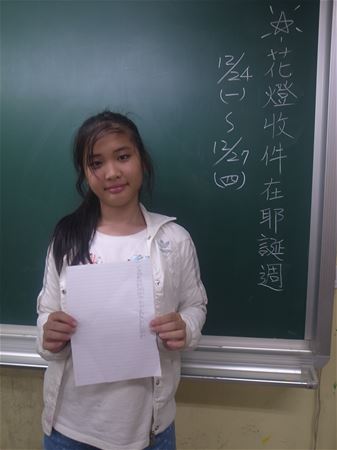 花燈收件在耶誕週
12/24
(一)
~
12/27
(四)